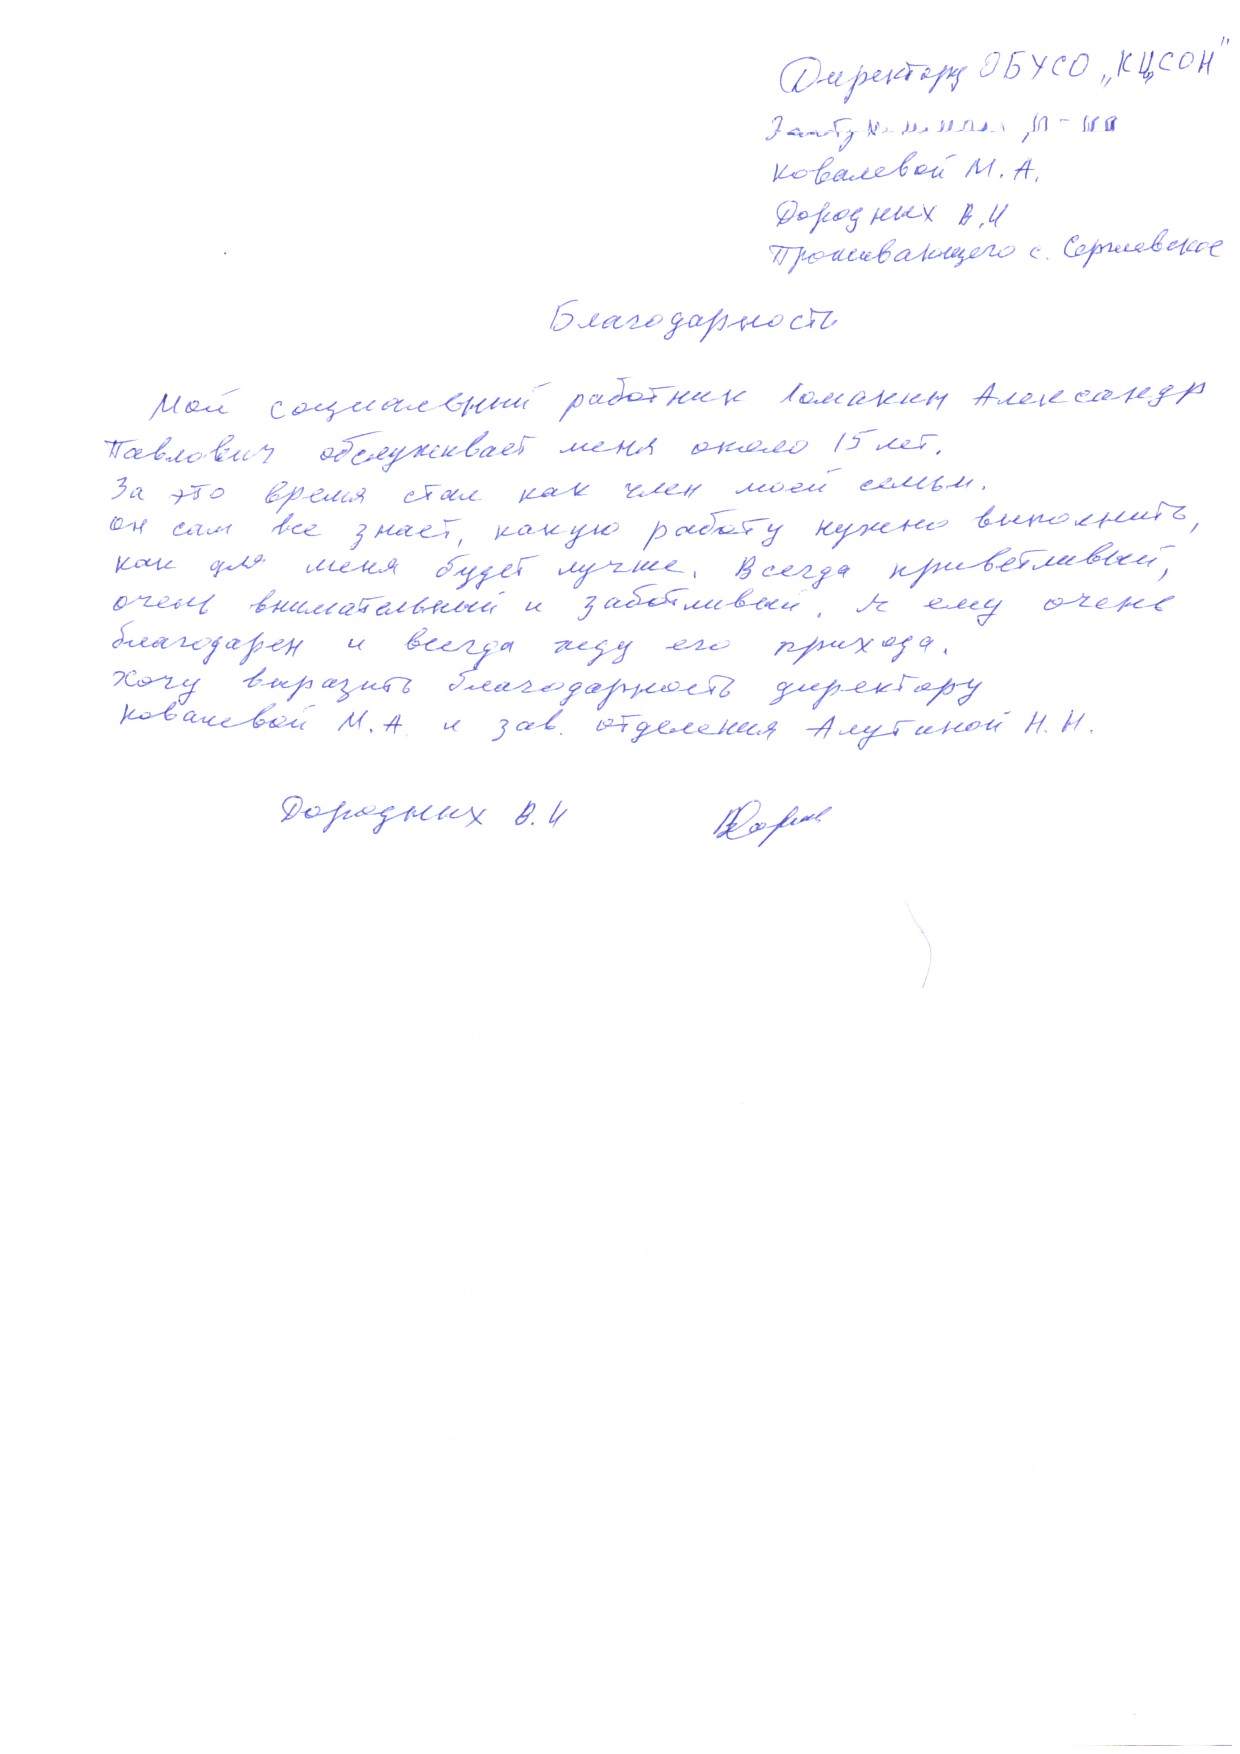 Директору ОБУСО „КЦСОН"
р-на
Ковалевой М. А.
Дородных В. И
Проживающего с. Сергиевское
Благодарность
Мой социальный работник Ломакин Александр
Павлович обслуживает меня около 15 лет.
За это время стал как член моей семьи.
он сам все знает, какую работу нужно выполнить,
как для меня будет лучше. Всегда приветливый,
очень внимательный и заботливый. Я ему очень
благодарен и всегда жду его прихода.
Хочу выразить благодарность директору
Ковалевой М. А. и зав. отделения Алутиной Н. Н.
Дородных В. И